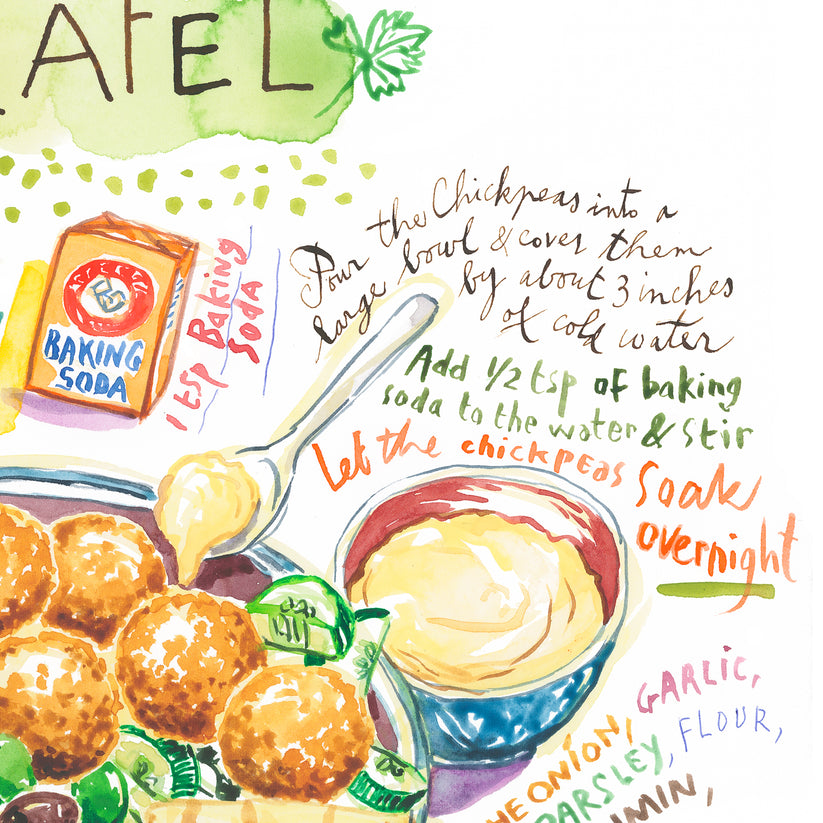 AFEL
BAKING
SODA
1 tsp Baking
Soda
Pour the Chickpeas into a
large bowl & cover them
by about 3 inches
of cold water
Add 1/2 tsp of baking
soda to the water & Stir
Let the chickpeas Soak
overnight
GARLIC,
HE ONION,
PARSLEY, FLOUR,
MIN,